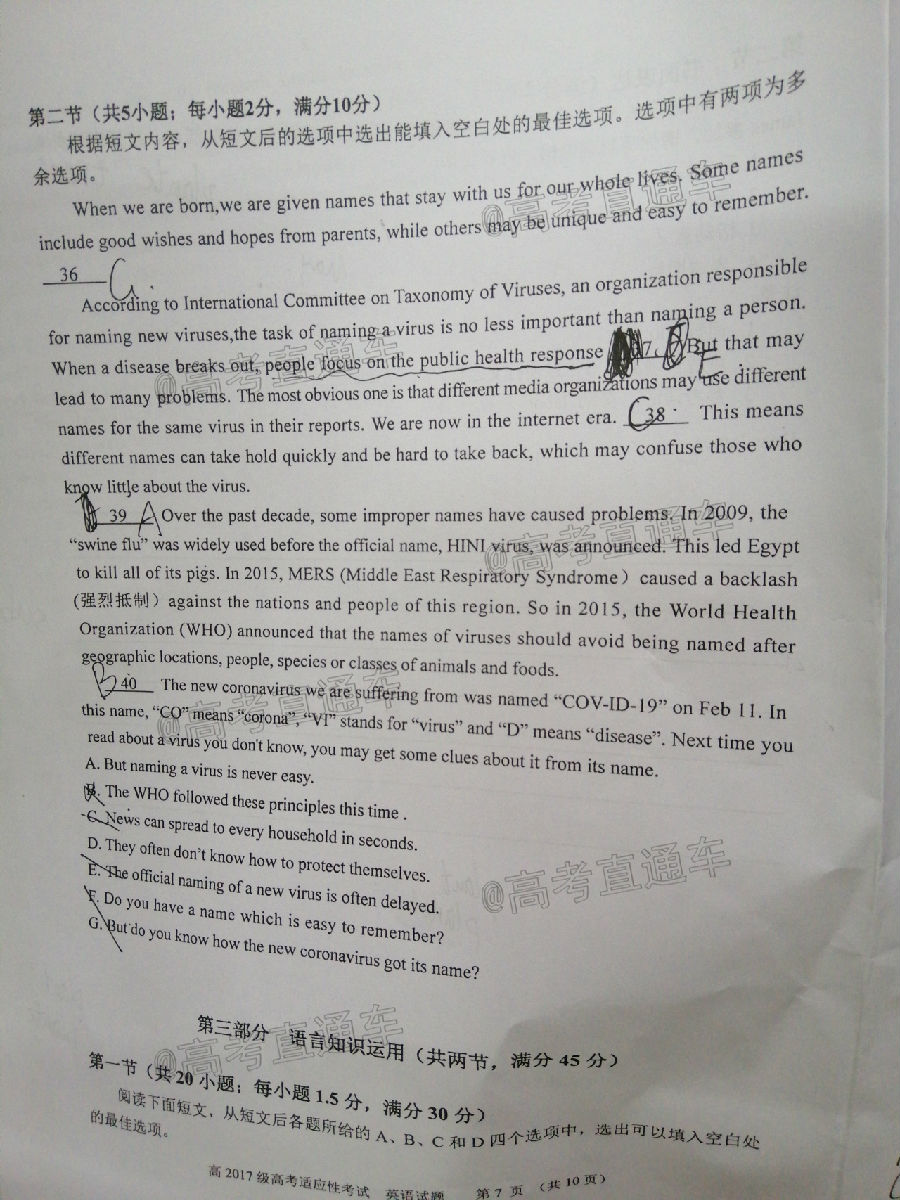 第二节（共5小题；每小题2分，满分10分）
根据短文内容，从短文后的选项中选出能填入空白处的最佳选项。选项中有两项为多
余选项。
When we are born,we are given names that stay with us for our whole lives. Some names
include good wishes and hopes from parents, while others may be unique and easy to remember.
36 G
According to International Committee on Taxonomy of Viruses, an organization responsible
for naming new viruses,the task of naming a virus is no less important than naming a person.
When a disease breaks out, people focus on the public health response 37. E But that may
lead to many problems. The most obvious one is that different media organizations may use different
names for the same virus in their reports. We are now in the internet era. C 38 This means
different names can take hold quickly and be hard to take back, which may confuse those who
know little about the virus.
39 A Over the past decade, some improper names have caused problems. In 2009, the
“swine flu” was widely used before the official name, HINI virus, was announced. This led Egypt
to kill all of its pigs. In 2015, MERS (Middle East Respiratory Syndrome） caused a backlash
(强烈抵制）against the nations and people of this region. So in 2015, the World Health
Organization (WHO) announced that the names of viruses should avoid being named after
geographic locations, people, species or classes of animals and foods.
B 40 The new coronavirus we are suffering from was named “COV-ID-19” on Feb 11. In
this name, “CO” means “corona”, “VI” stands for “virus” and “D” means “disease”. Next time you
read about a virus you don't know, you may get some clues about it from its name.
A. But naming a virus is never easy.
B. The WHO followed these principles this time .
C. News can spread to every household in seconds.
D. They often don't know how to protect themselves.
E. The official naming of a new virus is often delayed.
F. Do you have a name which is easy to remember?
G. But do you know how the new coronavirus got its name?
第三部分 语言知识运用（共两节，满分 45 分）
第一节（共 20 小题；每小题 1.5 分，满分 30 分）
阅读下面短文，从短文后各题所给的 A、B、C 和 D 四个选项中，选出可以填入空白处
的最佳选项。
高 2017 级高考适应性考试 英语试题 第 7 页 （共 10 页）
@高考直通车
@高考直通车
@高考直通车
@高考直通车
@高考直通车
@高考直通车